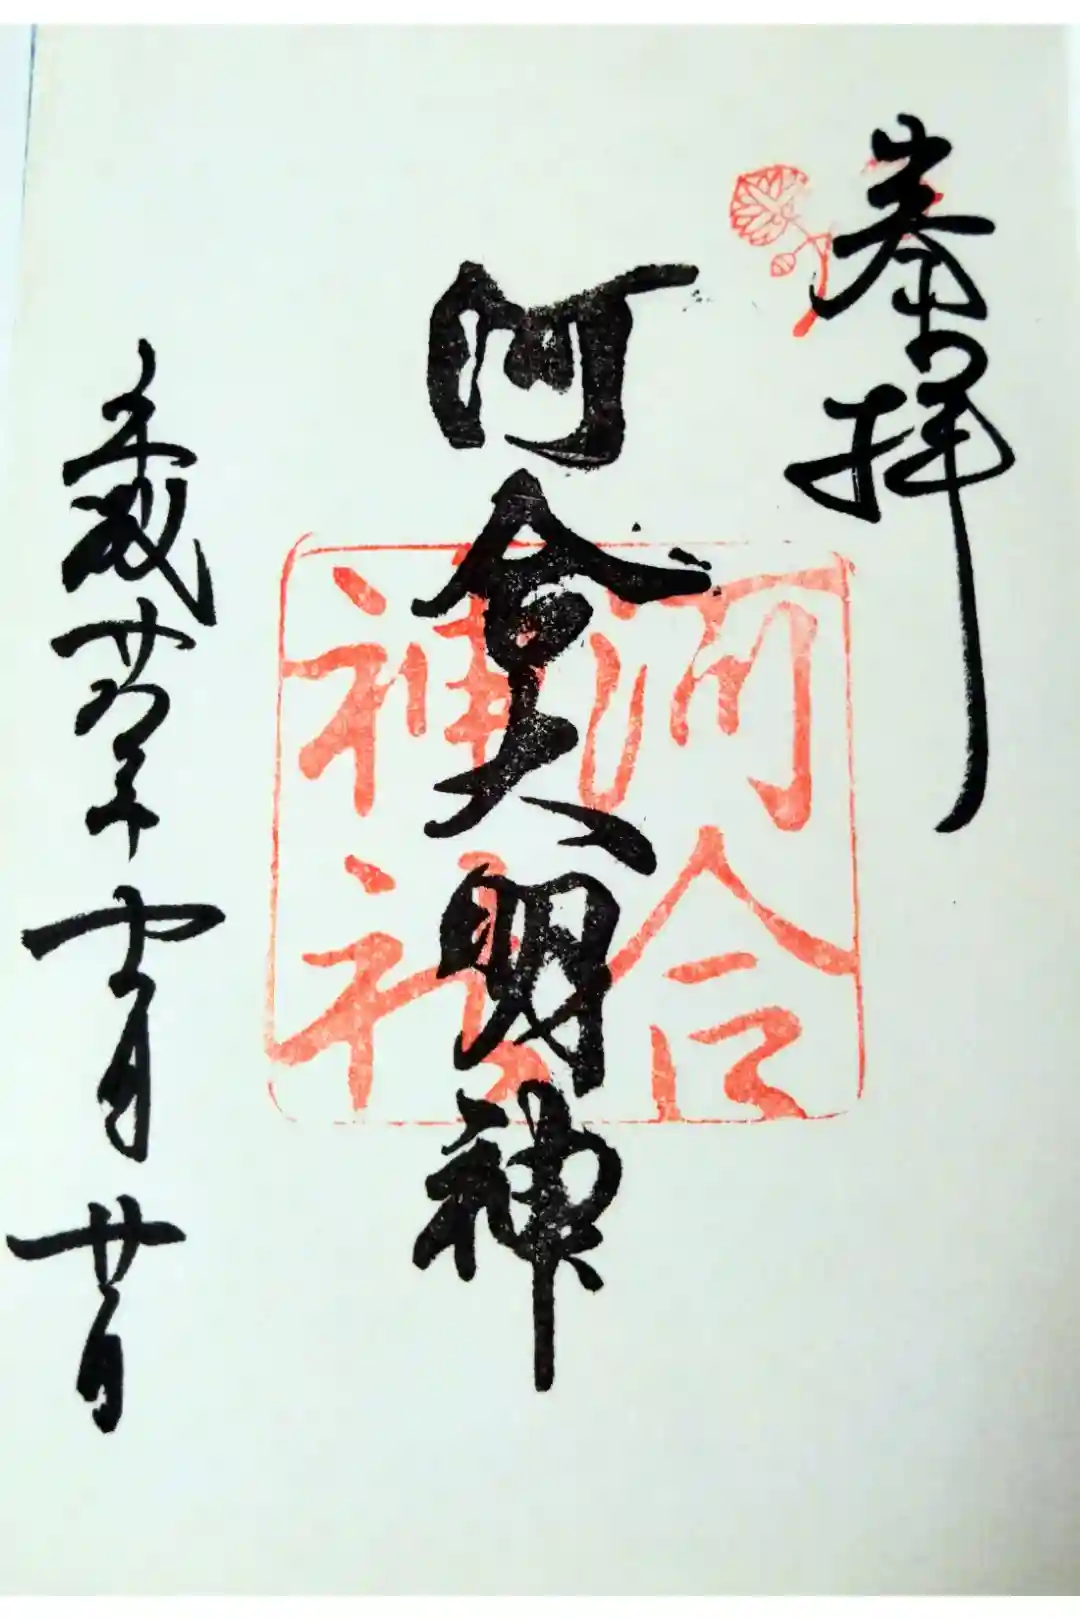 奉拝
河合大明神
河合
神社
平成廿年月廿日